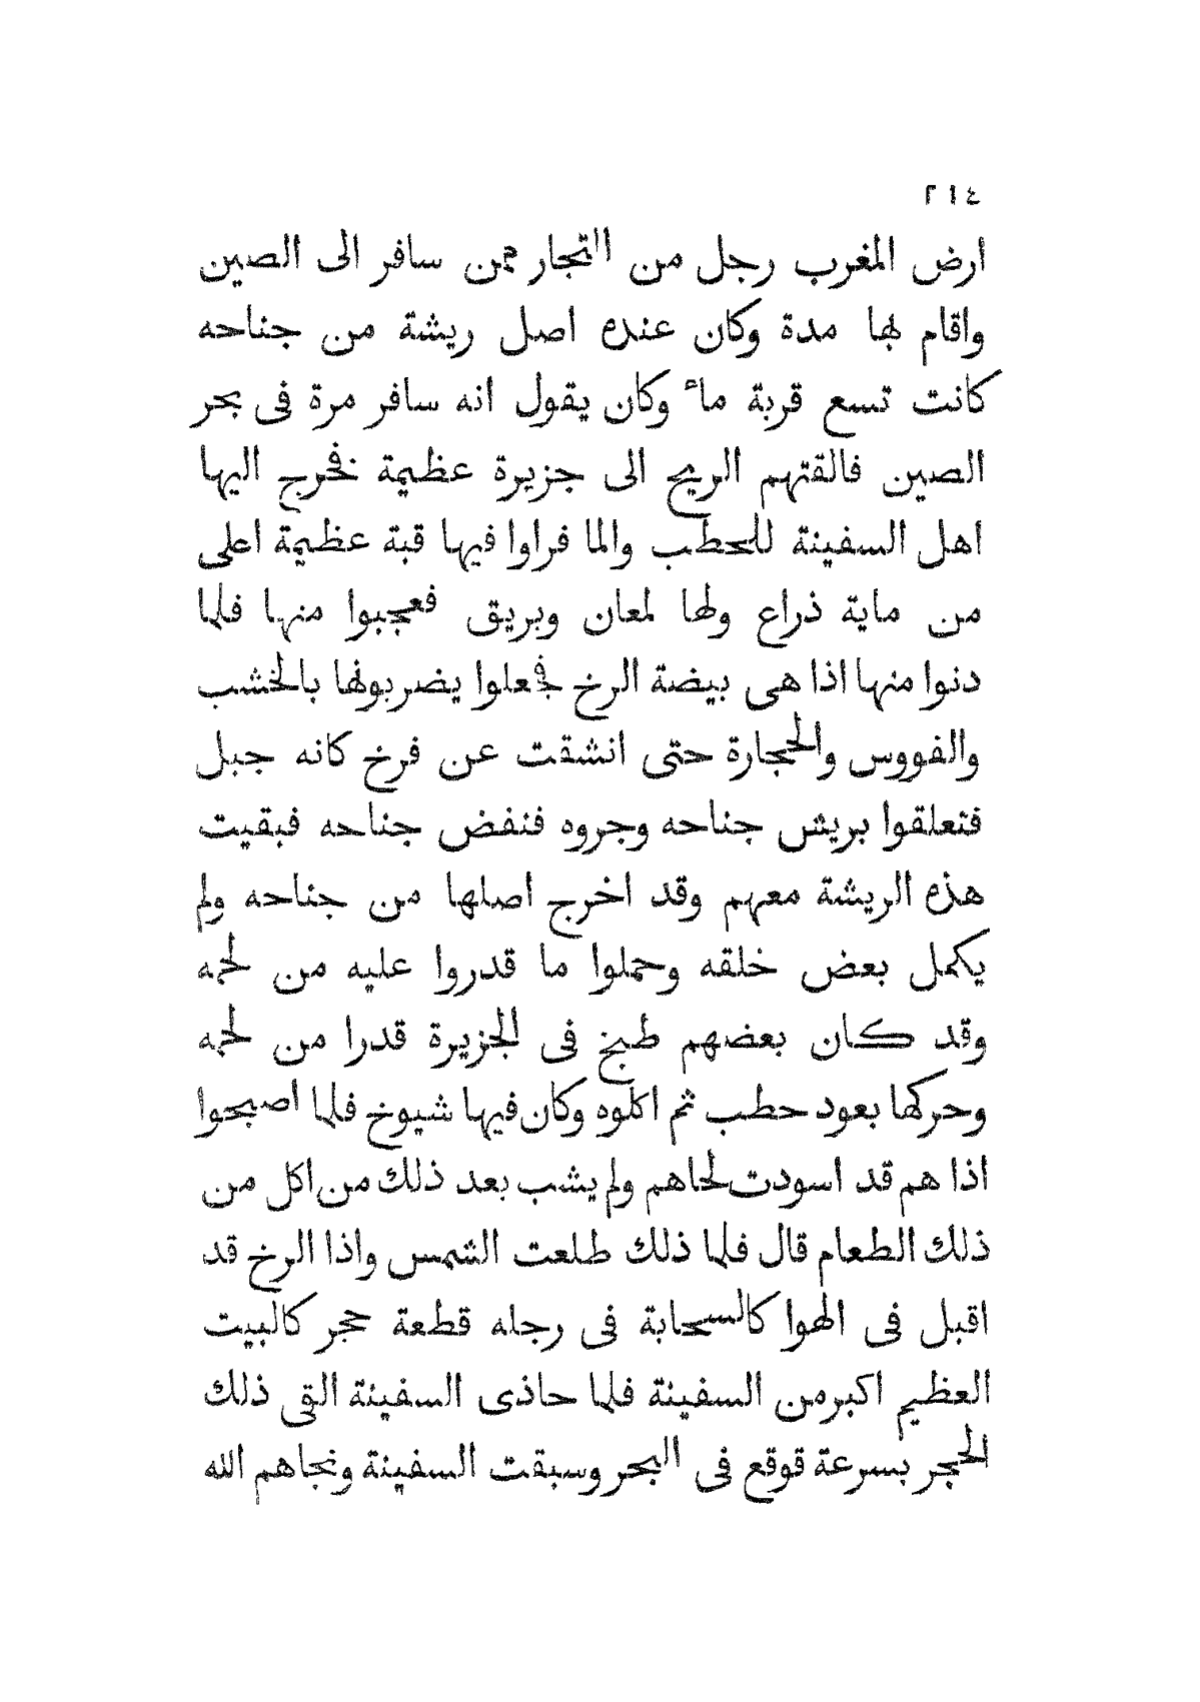 ٢١٤
ارض المغرب رجل من التجار ممن سافر الى الصين
واقام بها مدة وكان عنده اصل ريشة من جناحه
كانت تسع قربة ماء وكان يقول انه سافر مرة فى بحر
الصين فالقتهم الريح الى جزيرة عظيمة فخرج اليها
اهل السفينة للحطب والما فراوا فيها قبة عظيمة اعلى
من ماية ذراع ولها لمعان وبريق فعجبوا منها فلما
دنوا منها اذا هى بيضة الرخ فجعلوا يضربونها بالخشب
والفووس والحجارة حتى انشقت عن فرخ كانه جبل
فتعلقوا بريش جناحه وجروه فنفض جناحه فبقيت
هذه الريشة معهم وقد اخرج اصلها من جناحه ولم
يكمل بعض خلقه وحملوا ما قدروا عليه من لحمه
وقد كان بعضهم طبخ فى الجزيرة قدرا من لحمه
وحركها بعود حطب ثم اكلوه وكان فيها شيوخ فلما اصبحوا
اذا هم قد اسودت لحاهم ولم يشب بعد ذلك من اكل من
ذلك الطعام قال فلما ذلك طلعت الشمس واذا الرخ قد
اقبل فى الهوا كالسحابة فى رجله قطعة حجر كالبيت
العظيم اكبر من السفينة فلما حاذى السفينة القى ذلك
الحجر بسرعة قوقع فى البحر وسبقت السفينة ونجاهم الله